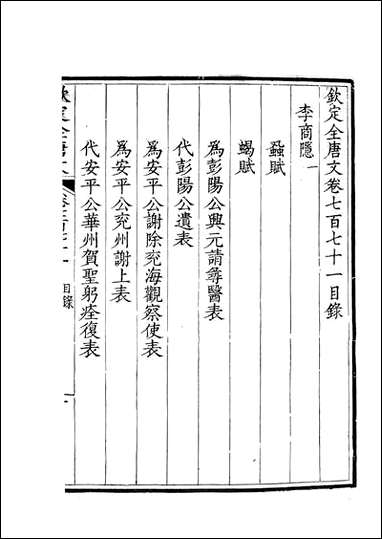 欽定全唐文卷七百七十一目錄
李商隱一
蝨賦
蝎賦
為彭陽公興元請尋醫表
代彭陽公遺表
為安平公謝除兗海觀察使表
為安平公兗州謝上表
代安平公華州賀聖躬痊復表
目錄